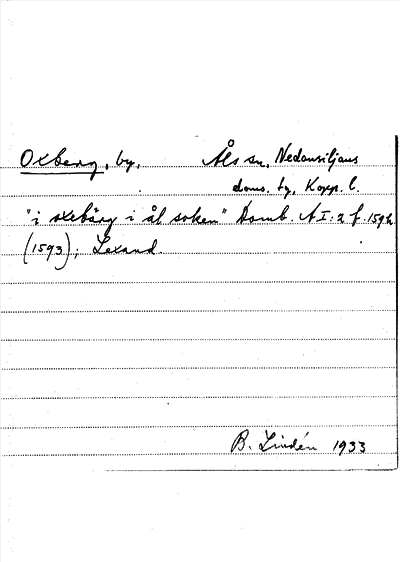 Oxberg, by, Åls sn, Nedansiljans
doms. tg, Kopp. l.
"i oxebärg i ål soken" Domb. A I: 2 f. 159 h.
(1593); Lexand.
B. Lindén 1933